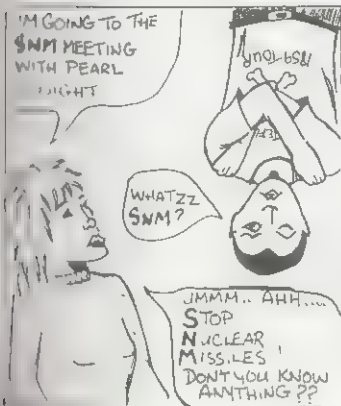 I'M GOING TO THE
$NM MEETING
WITH PEARL
NIGHT
WHATZZ
$NM?
UMMM.. AHH....
STOP
NUCLEAR
MISSILES!
DON'T YOU KNOW
ANYTHING??
TOUR